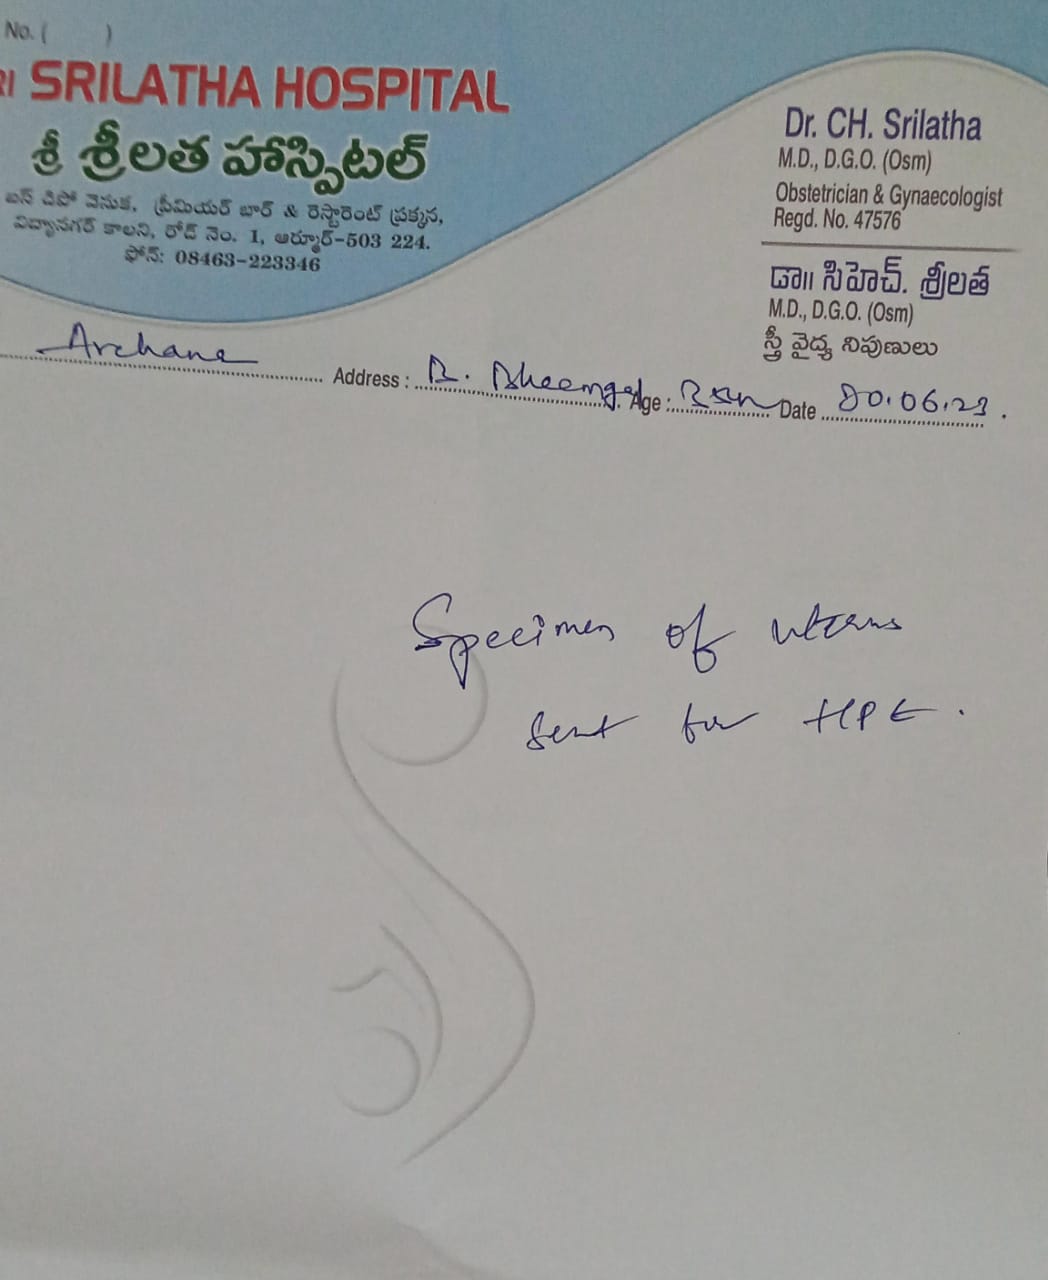 No. ( )
RI SRILATHA HOSPITAL
శ్రీ శ్రీలత హాస్పిటల్
బస్ డిపో వెనుక, ప్రీమియర్ బార్ & రెస్టారెంట్ ప్రక్కన,
విద్యానగర్ కాలని, రోడ్ నెం. 1, ఆర్మూర్-503 224.
ఫోన్: 08463-223346
Dr. CH. Srilatha
M.D., D.G.O. (Osm)
Obstetrician & Gynaecologist
Regd. No. 47576
డా॥ సిహెచ్. శ్రీలత
M.D., D.G.O. (Osm)
స్త్రీ వైద్య నిపుణులు
Archana Address : B. Bheemgal Age : Date .06.23.
Specimen of uterus
sent for HPE.